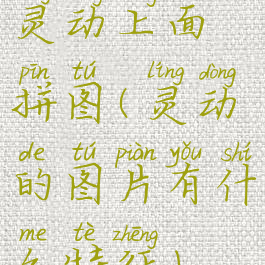 灵动上面
pīn tú líng dòng
拼图(灵动
de tú piàn yǒu shí
的图片有什
me tè zhēng